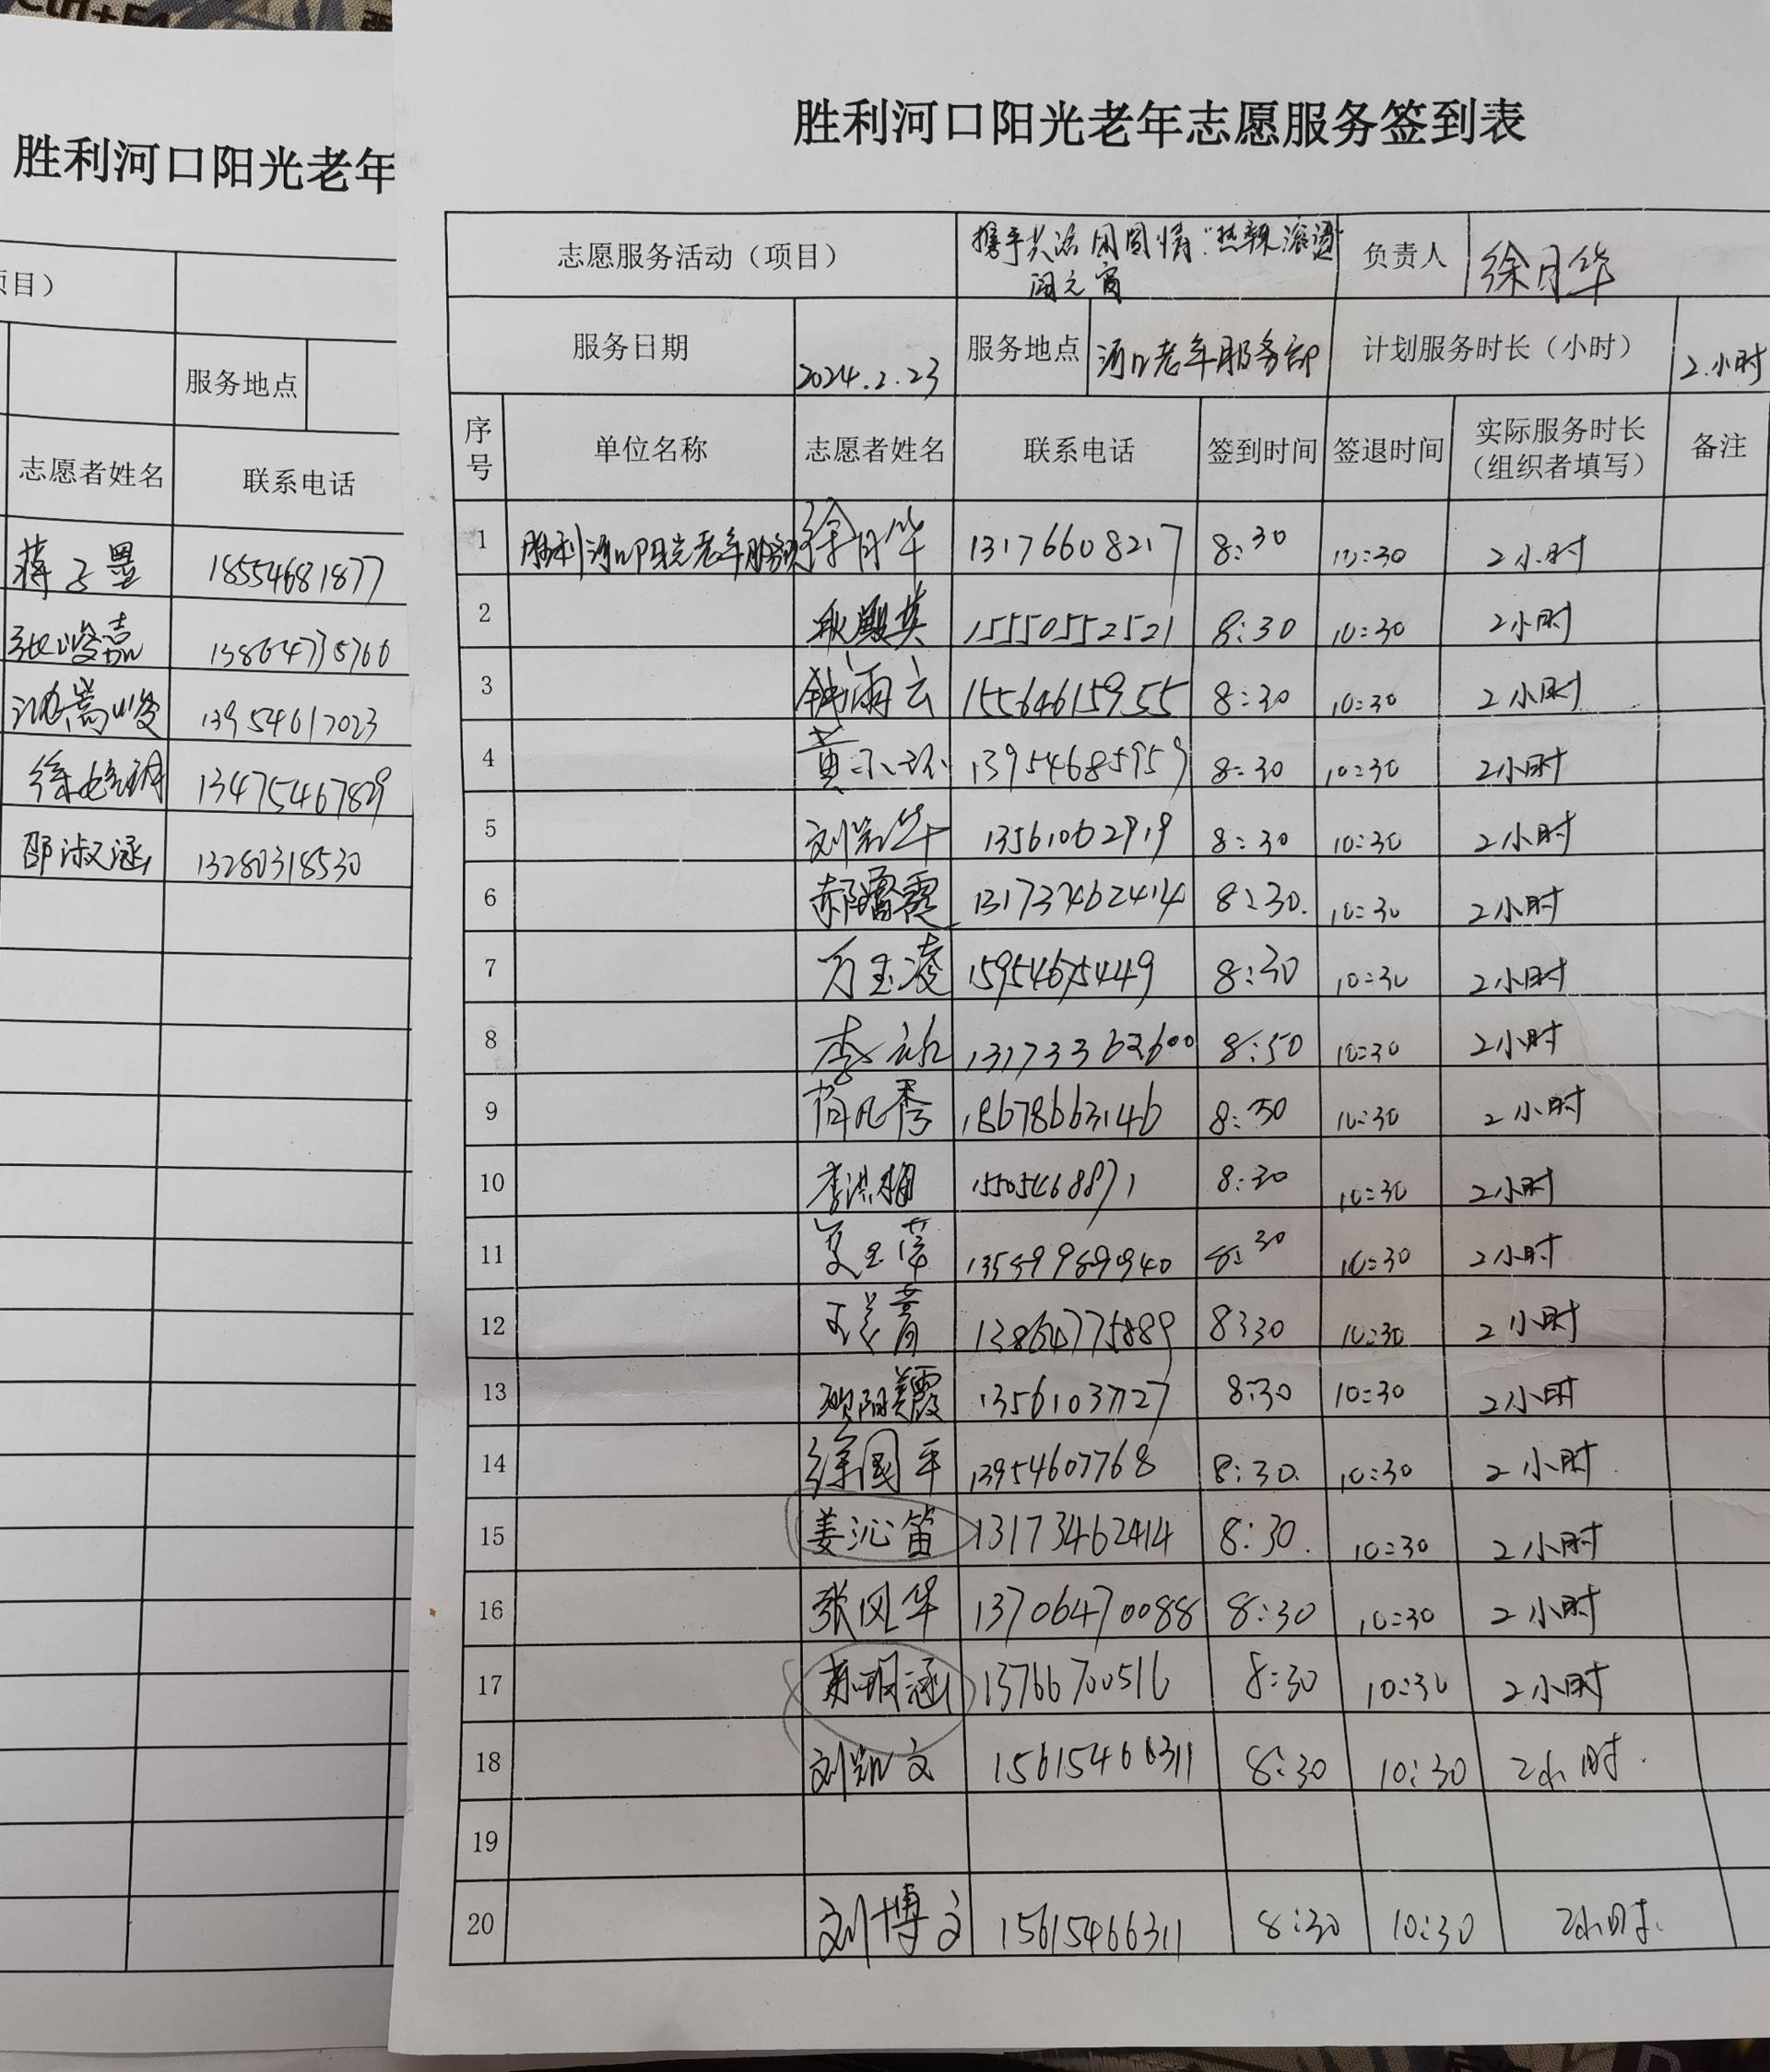 胜利河口阳光老年
项目）
服务地点
志愿者姓名 联系电话
蒋子墨 18554681877
张峻嘉 13864735766
嵩峻 13954617023
徐 13475467829
邵淑涵 13280318530
胜利河口阳光老年志愿服务签到表
志愿服务活动（项目） 携手共浴团圆情“热辣滚烫 负责人 徐月华
闹元宵
服务日期 2024.2.23 服务地点 河口老年服务部 计划服务时长（小时） 2小时
序号 单位名称 志愿者姓名 联系电话 签到时间 签退时间 实际服务时长（组织者填写） 备注
1 胜利河口阳光老年服务部 徐月华 13176608217 8:30 10:30 2小时
2 耿殿英 15550552521 8:30 10:30 2小时
3 钱雨云 15564615955 8:30 10:30 2小时
4 黄 13954685959 8:30 10:30 2小时
5 刘 华 13561062919 8:30 10:30 2小时
6 郝 霞 8:30. 10:30 2小时
7 万玉凌 15954675449 8:30 10:30 2小时
8 李 13173362600 8:30 10:30 2小时
9 秀 18678663146 8:30 10:30 2小时
10 李洪梅 15505468871 8:30 10:30 2小时
11 玉萍 13589989940 8:30 10:30 2小时
12 王 青 13864775889 8:30 10:30 2小时
13 欧阳美霞 13561037727 8:30 10:30 2小时
14 徐国平 13954607768 8:30. 10:30 2小时
15 姜沁笛 13173462414 8:30. 10:30 2小时
16 张风华 13706470088 8:30 10:30 2小时
17 明涵 13766700516 8:30 10:30 2小时
18 刘凯文 15615466311 8:30 10:30 2小时.
19
20 刘博文 15615466311 8:30 10:30 2小时.